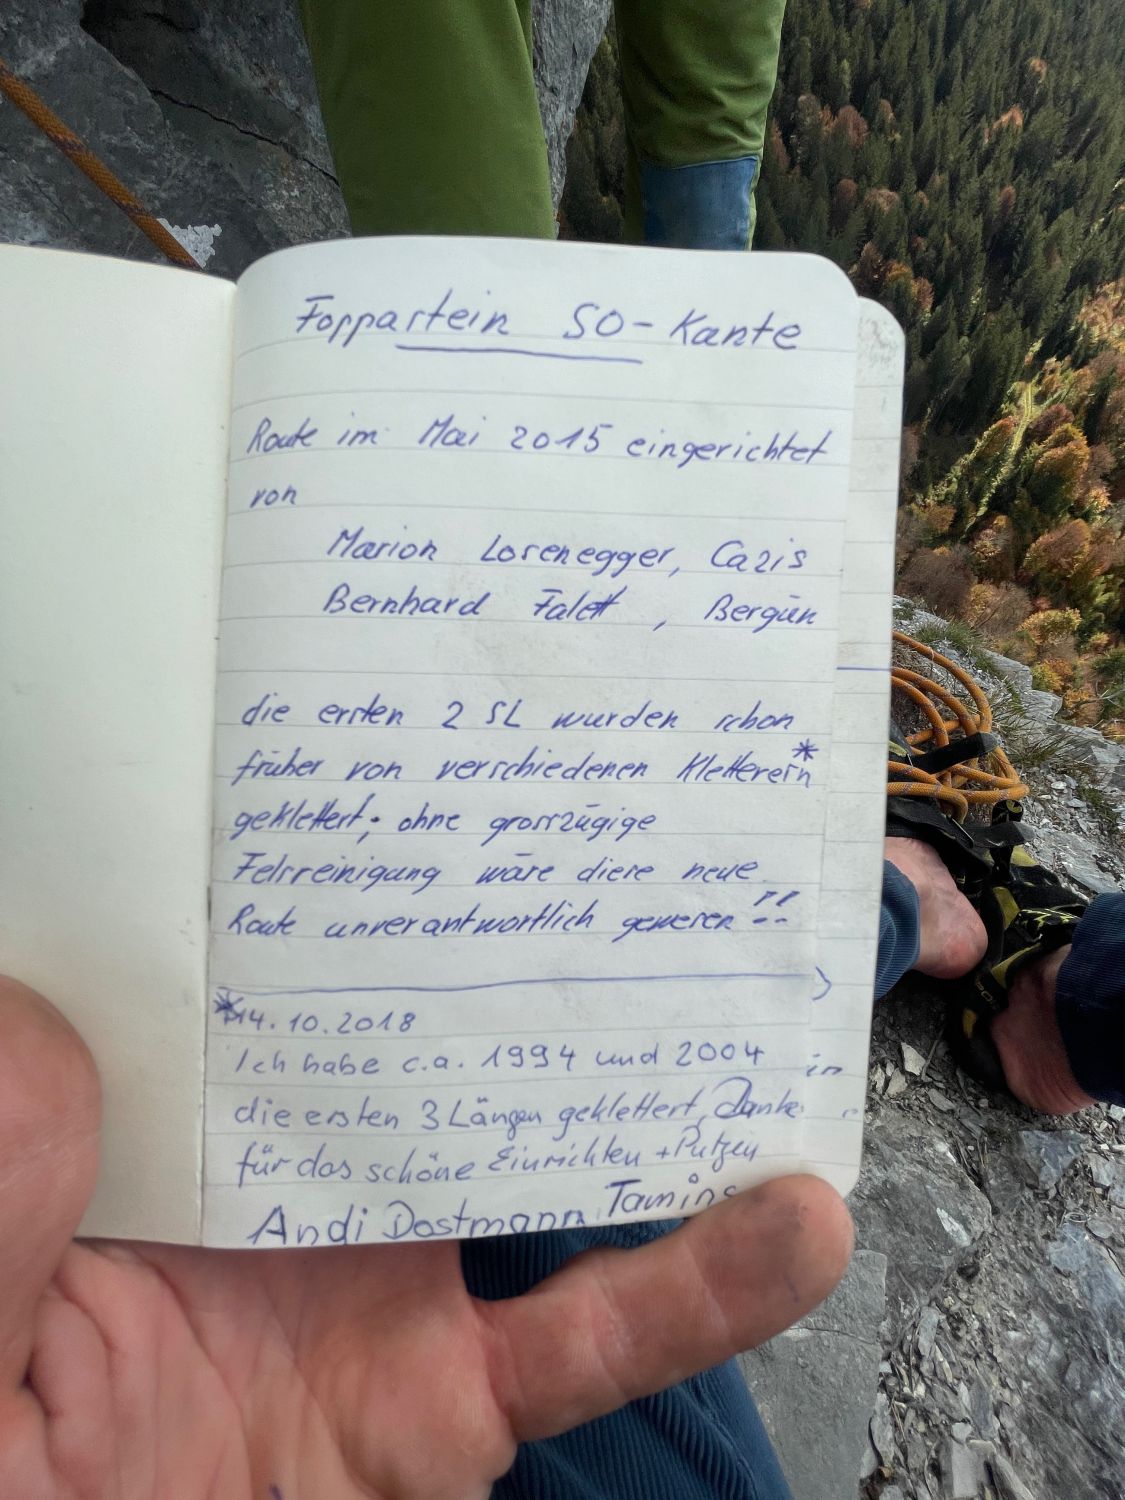 Foppastein SO-Kante
Route im Mai 2015 eingerichtet
von
Marion Losenegger, Cazis
Bernhard Falett, Bergün
die ersten 2 SL wurden schon
früher von verschiedenen Kletterern*
geklettert; ohne grosszügige
Felsreinigung wäre diese neue
Route unverantwortlich gewesen!!
*14.10.2018
Ich habe c.a. 1994 und 2004
die ersten 3 Längen geklettert, Danke
für das schöne Einrichten + Putzen
Andi Dostmann, Tamins
in